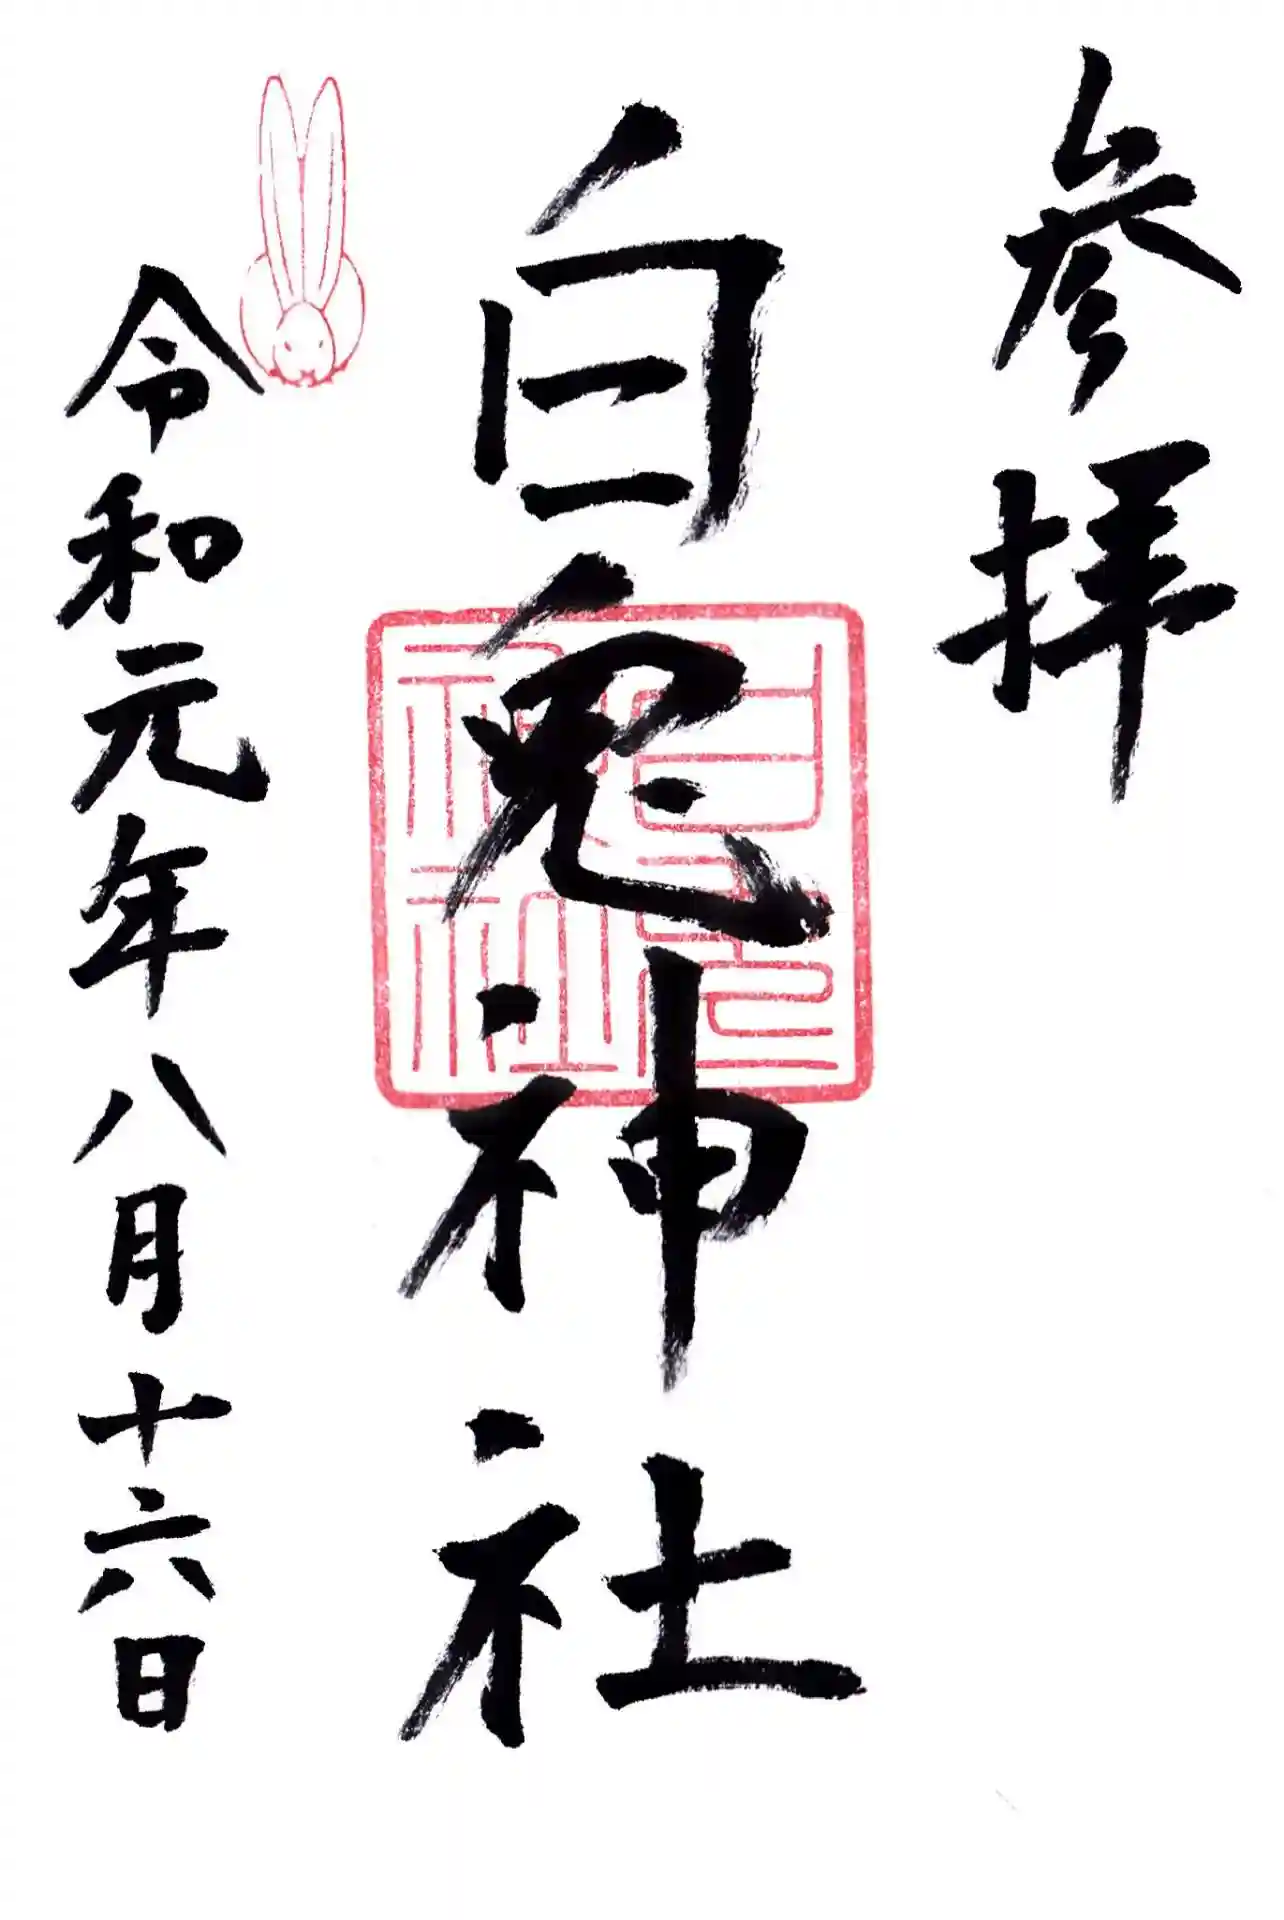 参拝
白兎神社
令和元年八月十六日
白兎神社